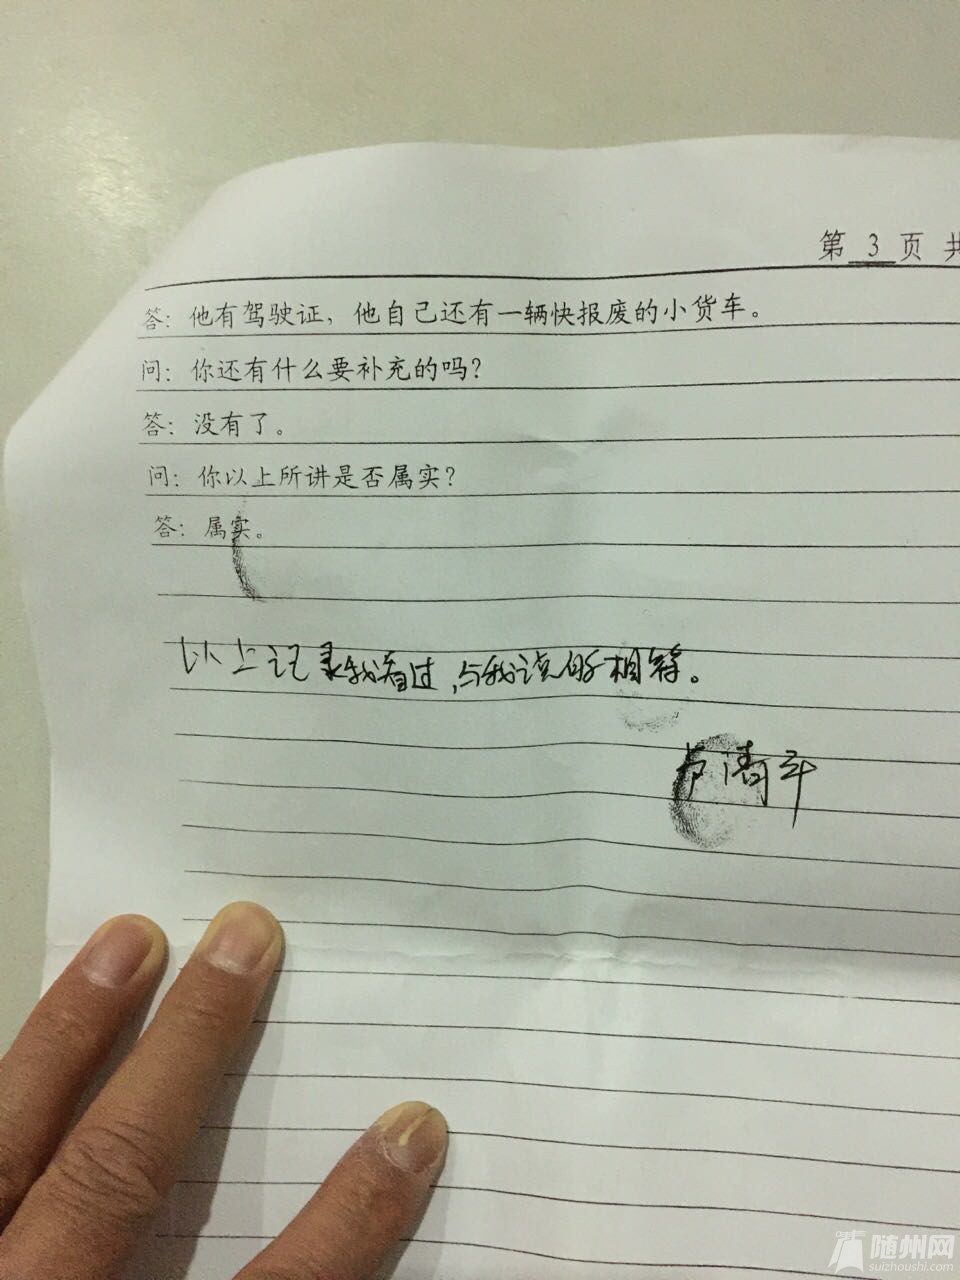 第 3 页 共
答：他有驾驶证，他自己还有一辆快报废的小货车。
问：你还有什么要补充的吗？
答：没有了。
问：你以上所讲是否属实？
答：属实。
以上记录我看过，与我说的相符。
随州网
suizhoushi.com